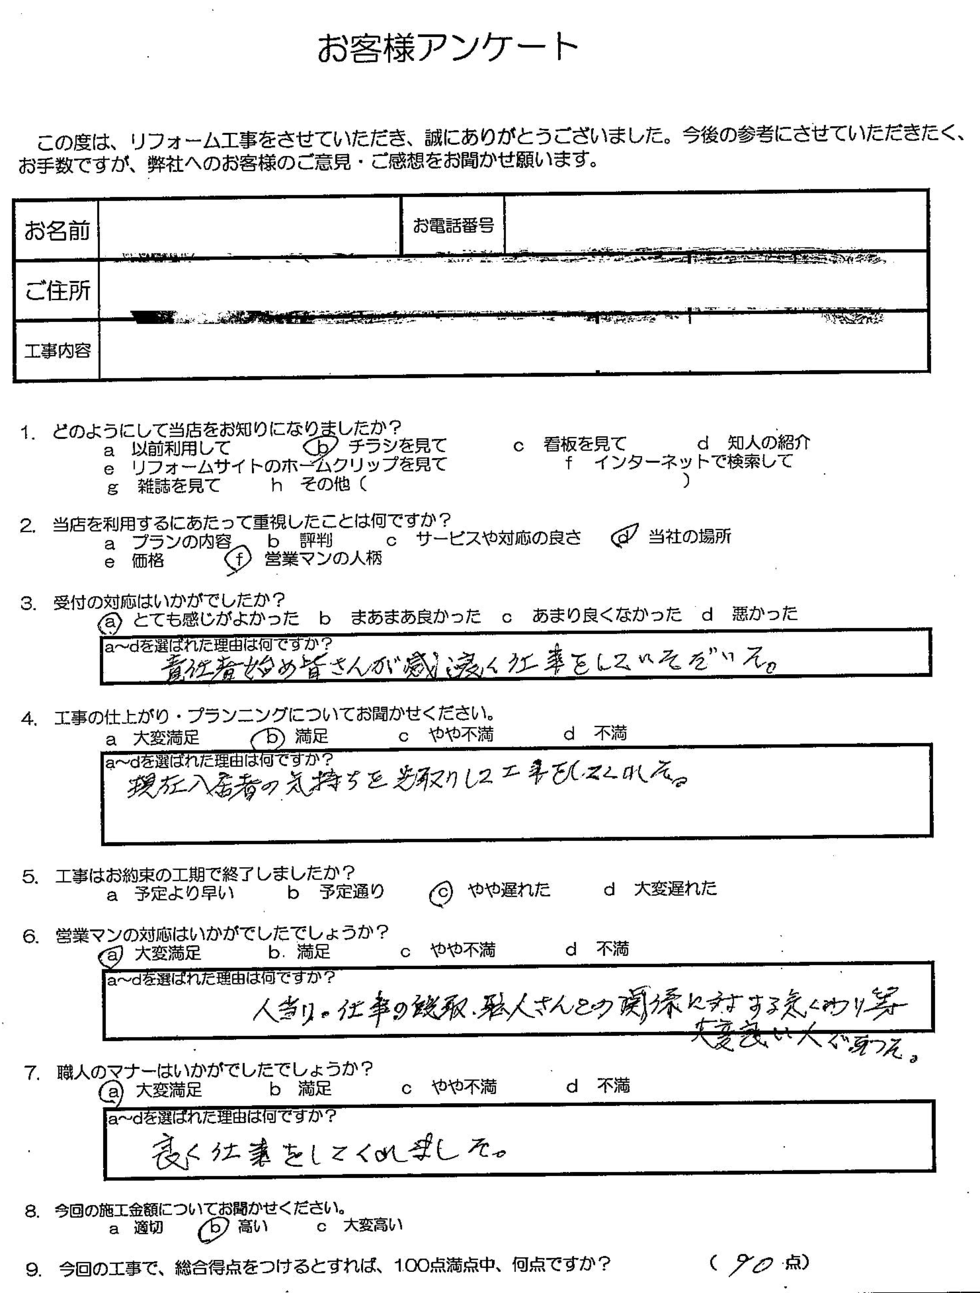 お客様アンケート
この度は、リフォーム工事をさせていただき、誠にありがとうございました。今後の参考にさせていただきたく、
お手数ですが、弊社へのお客様のご意見・ご感想をお聞かせ願います。
お名前 お電話番号
ご住所
工事内容
1. どのようにして当店をお知りになりましたか?
a 以前利用して b チラシを見て c 看板を見て d 知人の紹介
e リフォームサイトのホームクリップを見て f インターネットで検索して
g 雑誌を見て h その他( )
2. 当店を利用するにあたって重視したことは何ですか?
a プランの内容 b 評判 c サービスや対応の良さ d 当社の場所
e 価格 f 営業マンの人柄
3. 受付の対応はいかがでしたか?
a とても感じがよかった b まあまあ良かった c あまり良くなかった d 悪かった
a～dを選ばれた理由は何ですか?
責任者始め皆さんが感じ良く仕事をしていただいた。
4. 工事の仕上がり・プランニングについてお聞かせください。
a 大変満足 b 満足 c やや不満 d 不満
a～dを選ばれた理由は何ですか?
現在入居者の気持ちを先取りして工事をしてくれた。
5. 工事はお約束の工期で終了しましたか?
a 予定より早い b 予定通り c やや遅れた d 大変遅れた
6. 営業マンの対応はいかがでしたでしょうか?
a 大変満足 b. 満足 c やや不満 d 不満
a～dを選ばれた理由は何ですか?
人当り。仕事の段取、職人さんとの関係に対する気くわり等
大変良い人で有った。
7. 職人のマナーはいかがでしたでしょうか?
a 大変満足 b 満足 c やや不満 d 不満
a～dを選ばれた理由は何ですか?
良く仕事をしてくれました。
8. 今回の施工金額についてお聞かせください。
a 適切 b 高い c 大変高い
9. 今回の工事で、総合得点をつけるとすれば、100点満点中、何点ですか? ( 90 点)